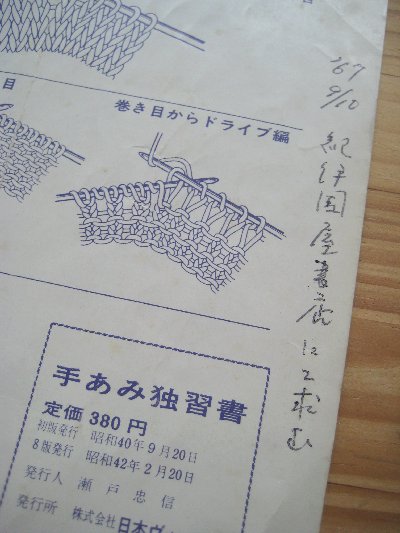 目
巻き目からドライブ編
手あみ独習書
定価 380円
初版発行 昭和40年9月20日
8版発行 昭和42年2月20日
発行人 瀬戸忠信
発行所 株式会社 日本ヴ
'67
9/10
紀伊國屋書店にて求む